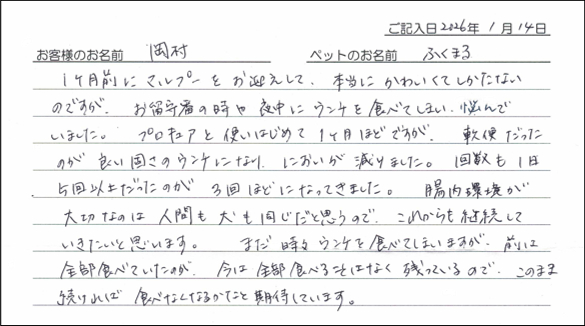 ご記入日2026年 1月14日
お客様のお名前 岡村 ペットのお名前 ふくまる
1ヶ月前にマルプーをお迎えして、本当にかわいくてしかたない
のですが、お留守番の時や夜中にウンチを食べてしまい悩んで
いました。プロキュアを使いはじめて1ヶ月ほどですが、軟便だった
のが良い固さのウンチになり、においが減りました。回数も1日
5回以上だったのが3回ほどになってきました。腸内環境が
大切なのは人間も犬も同じだと思うので、これからも継続して
いきたいと思います。まだ時々ウンチを食べてしまいますが、前は
全部食べていたのが、今は全部食べることはなく残っているので、このまま
続ければ食べなくなるかなと期待しています。